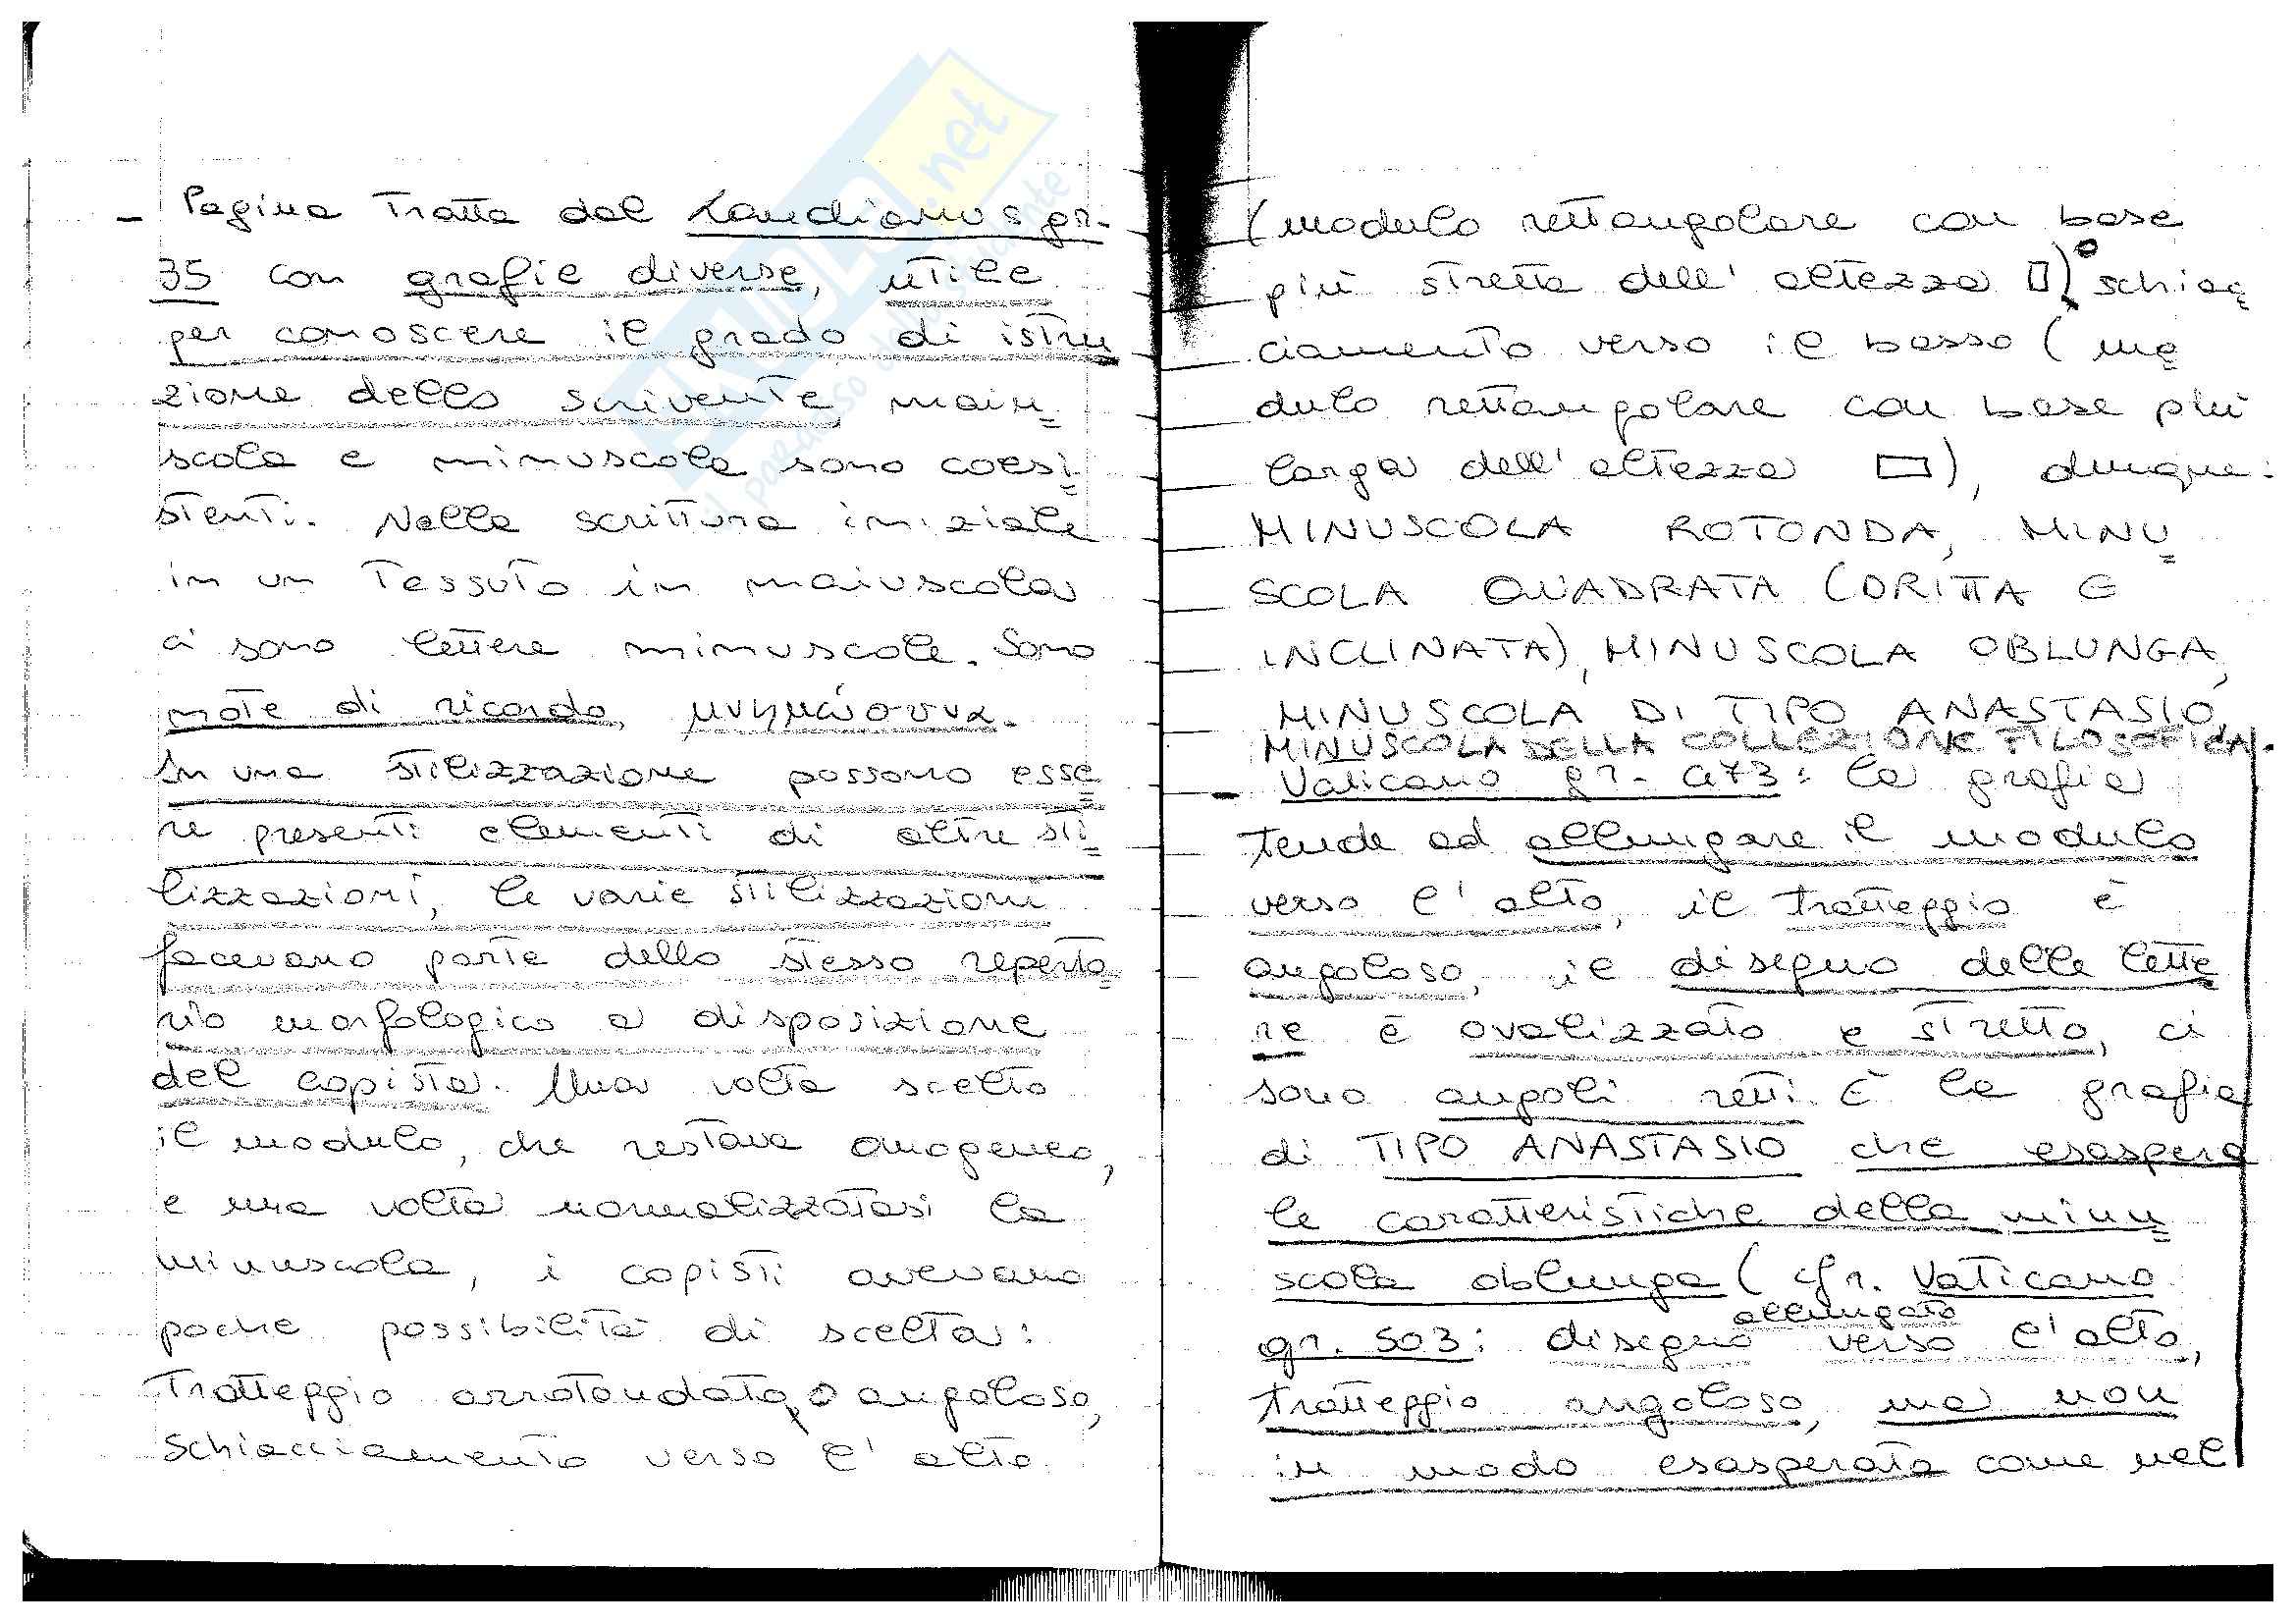 - Pagina Tratta dal Laudianus gr.
35 con grafie diverse, utile
per conoscere il grado di istru
zione dello scrivente maiu
scola e minuscola sono coesi
stenti. Nella scrittura iniziale
in un Tessuto in maiuscola
ci sono lettere minuscole. Sono
note di ricordo, μνημόσυνα.
In una stilizzazione possono esse
re presenti elementi di altre sti
lizzazioni, le varie stilizzazioni
facevano parte dello stesso reperto
rio morfologico a disposizione
del copista. Una volta scelto
il modulo, che restava omogeneo,
e una volta normalizzatasi la
minuscola, i copisti avevano
poche possibilità di scelta:
Tratteggio arrotondato, o angoloso,
schiacciamento verso l'alto
(modulo rettangolare con base
più stretta dell'altezza ▯) o schiac
ciamento verso il basso (mo
dulo rettangolare con base più
larga dell'altezza ▭), dunque:
MINUSCOLA ROTONDA, MINU
SCOLA QUADRATA (DRITTA E
INCLINATA), MINUSCOLA OBLUNGA,
MINUSCOLA DI TIPO ANASTASIO,
MINUSCOLA DELLA COLLEZIONE FILOSOFICA.
- Vaticano gr. 473: la grafia
tende ad allungare il modulo
verso l'alto, il tratteggio è
angoloso, il disegno delle lette
re è ovalizzato e stretto, ci
sono angoli retti. È la grafia
di TIPO ANASTASIO che esaspera
le caratteristiche della minu
scola oblunga (cfr. Vaticano
gr. 503: disegno allungato verso l'alto,
tratteggio angoloso, ma non
in modo esasperato come nel
il paradiso dello studente
.net